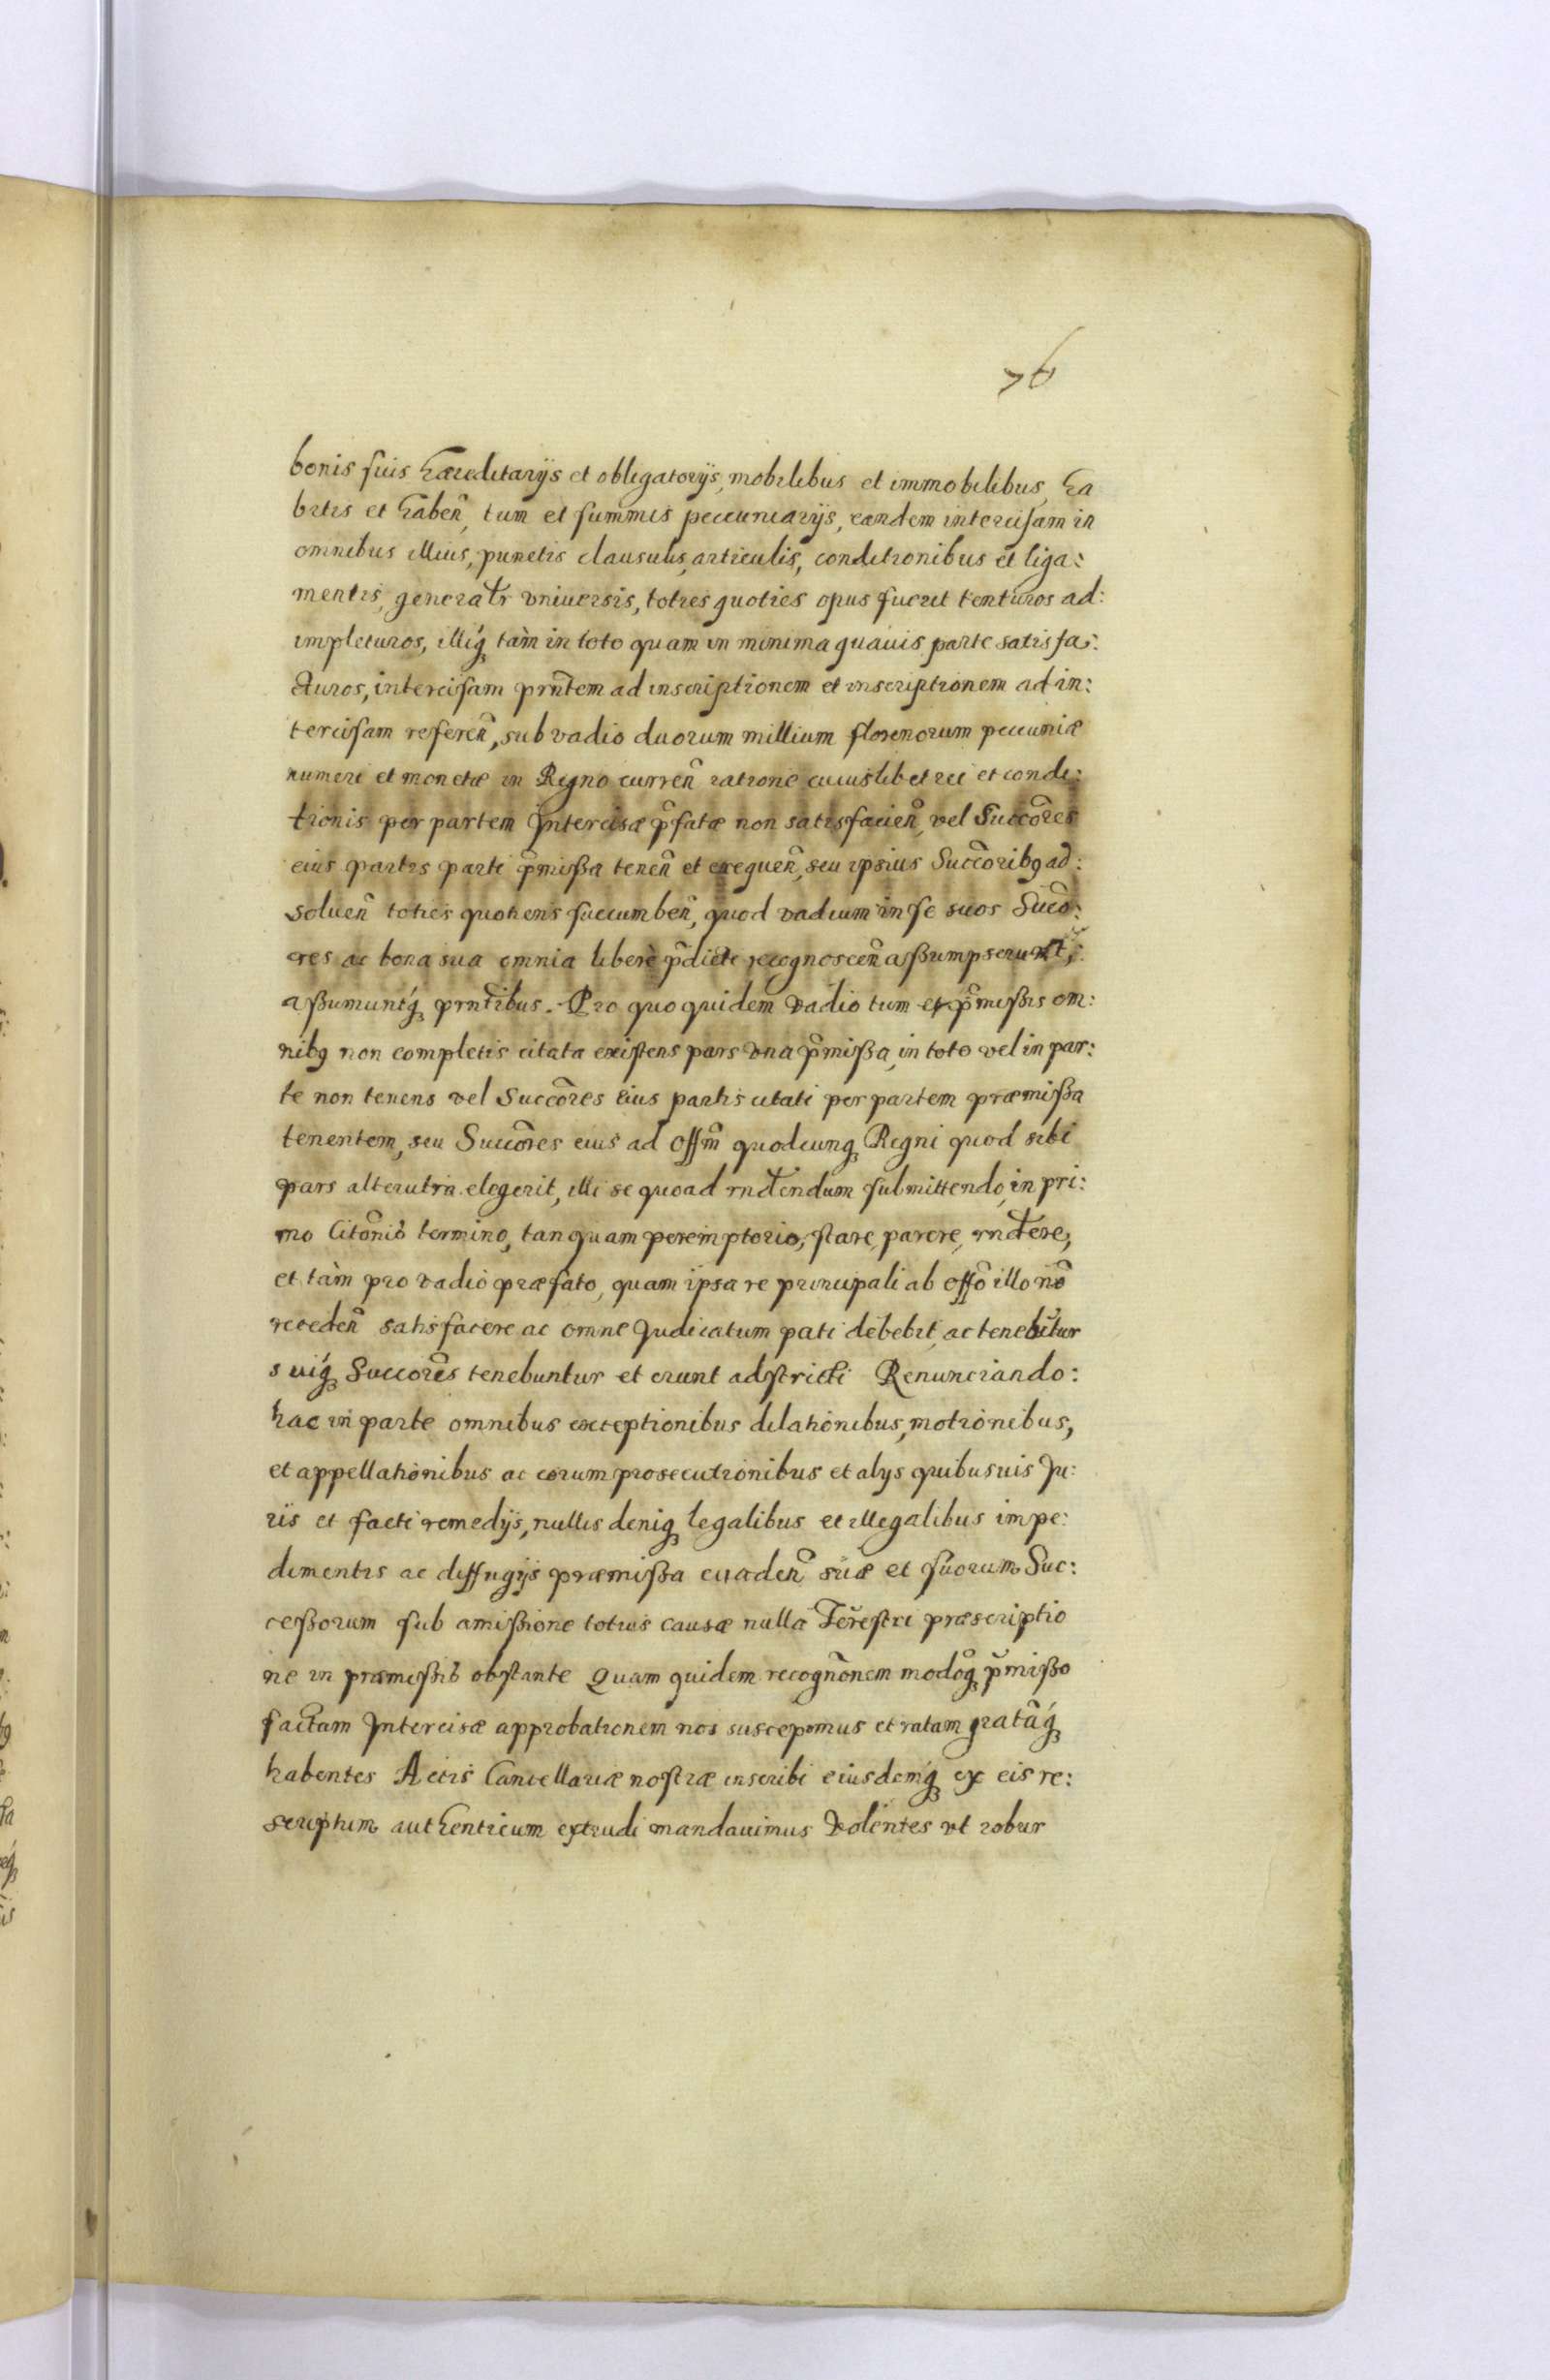 76
bonis suis hæreditarijs et obligatorijs, mobilibus et immobilibus, ha
bitis et habeñ, tum et summis pecuniarijs, eandem intercisam in
omnibus illius, punctis clausulis, articulis, conditionibus et liga:
mentis, generatr vniuersis, toties quoties opus fuerit tenturos ad:
impleturos, illiq́ꝫ tàm in toto quam in minima quauis parte satisfa:
cturos, intercisam prñtem ad inscriptionem et inscriptionem ad in:
tercisam refereñ, sub vadio duorum millium florenorum pecuniæ
numeri et monetæ in Regno curreñ ratione cuiuslibet rei et condi:
tionis per partem Intercisæ p̃fatæ non satisfacieñ, vel Succõres
eius partis parti p̃missa teneñ et exequeñ, seu ipsius Succõribꝰ ad:
solueñ toties quotiens succumbeñ, quod vadium in se suos Sucõ:
res ac bona sua omnia liberè p̃dicti recognosceñ assumpserunt,
assumuntq́ꝫ prñtibus. Pro quo quidem vadio tum et p̃missis om:
nibꝰ non completis citata existens pars vna p̃missa, in toto vel in par:
te non tenens vel Succõres eius partis citati per partem præmissa
tenentem, seu Succõres eius ad Offm̃ quodcunqꝫ Regni quod sibi
pars alterutra elegerit, illi se quoad rñdendum submittendo, in pri:
mo Citõnis termino, tanquam peremptorio, stare, parere, rñdere,
et tàm pro vadio præfato, quam ipsa re principali ab offõ illo nõ
recedeñ satisfacere ac omne Judicatum pati debebit, ac tenebitur
suiq́ꝫ Succorẽs tenebuntur et erunt adstricti Renunciando:
hac in parte omnibus exceptionibus dilationibus, motionibus,
et appellationibus ac eorum prosecutionibus et alys quibusuis Ju:
ris et facti remedijs, nullis deniqꝫ legalibus et illegalibus impe:
dimentis ac diffugijs præmissa euadeñ suæ et suorum Suc:
cessorum sub amissione totius causæ nulla Terrestri præscriptio
ne in præmissis obstante Quam quidem recognõnem modõqꝫ p̃misso
factam Intercisæ approbationem nos suscepimus et ratam gratãq́ꝫ
habentes Actis Cancellariæ nostræ inscribi eiusdemq́ꝫ ex eis re:
scriptum authenticum extrudi mandauimus Volentes vt robur